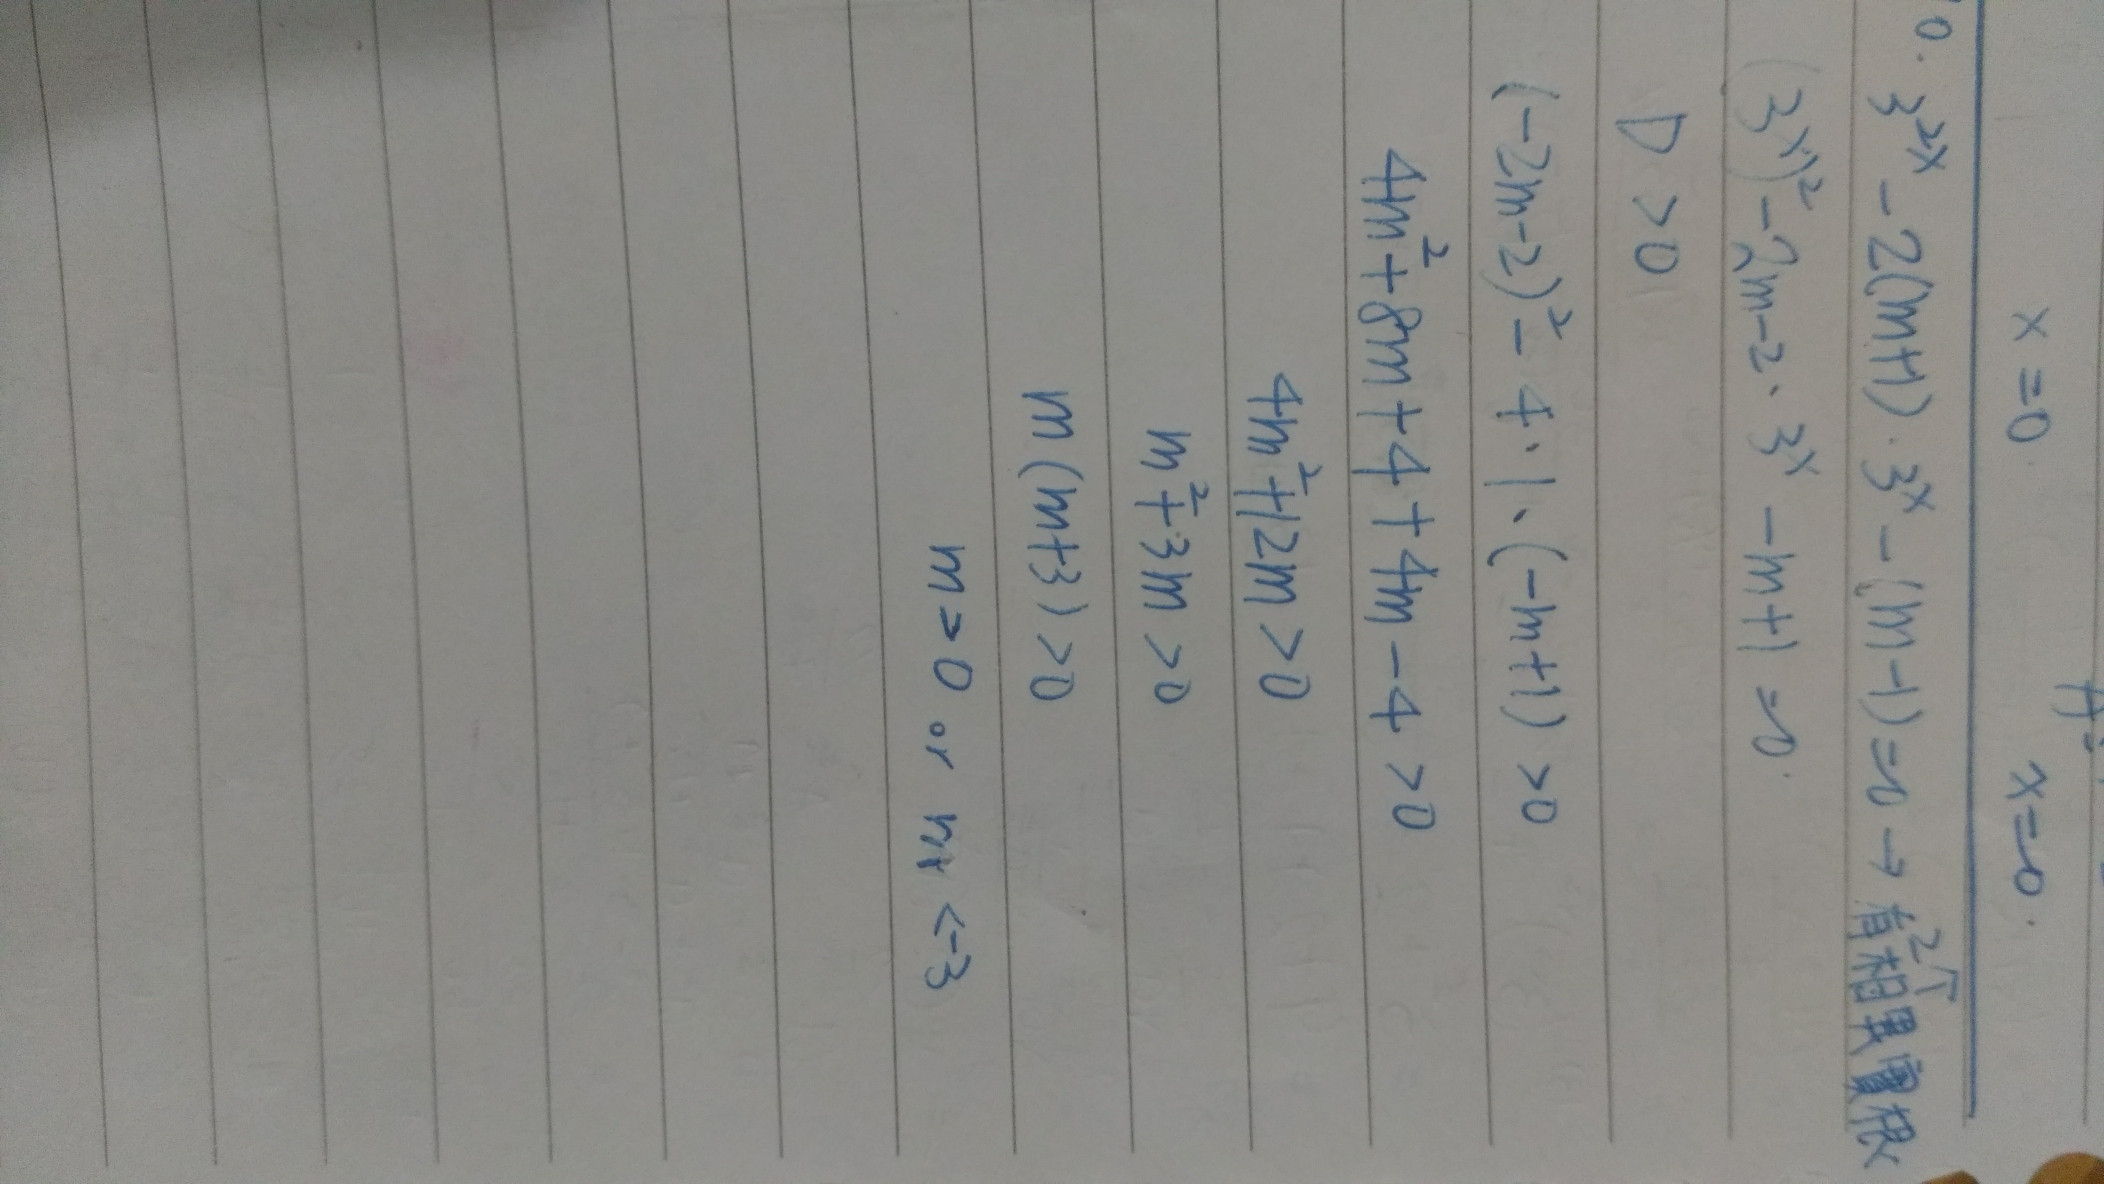 x=0. x=0.
0. 3^{2x} - 2(m+1)·3^x - (m-1) = 0 → 有2个相異實根
(3^x)² - 2m-2·3^x - m+1 = 0.
D > 0
(-2m-2)² - 4·1·(-m+1) > 0
4m² + 8m + 4 + 4m - 4 > 0
4m² + 12m > 0
m² + 3m > 0
m(m+3) > 0
m > 0 or m < -3